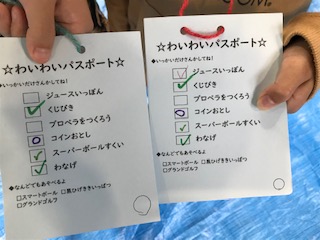 ☆わいわいパスポート☆
◆いっかいだけさんかしてね!
ジュースいっぽん
くじびき
プロペラをつくろう
コインおとし
スーパーボールすくい
わなげ
◆なんどでもあそべるよ
□スマートボール □黒ひげききいっぱつ
□グランドゴルフ
☆わいわいパスポート☆
◆いっかいだけさんかしてね!
ジュースいっぽん
くじびき
プロペラをつくろう
コインおとし
スーパーボールすくい
わなげ
◆なんどでもあそべるよ
□スマートボール □黒ひげききいっぱつ
□グランドゴルフ